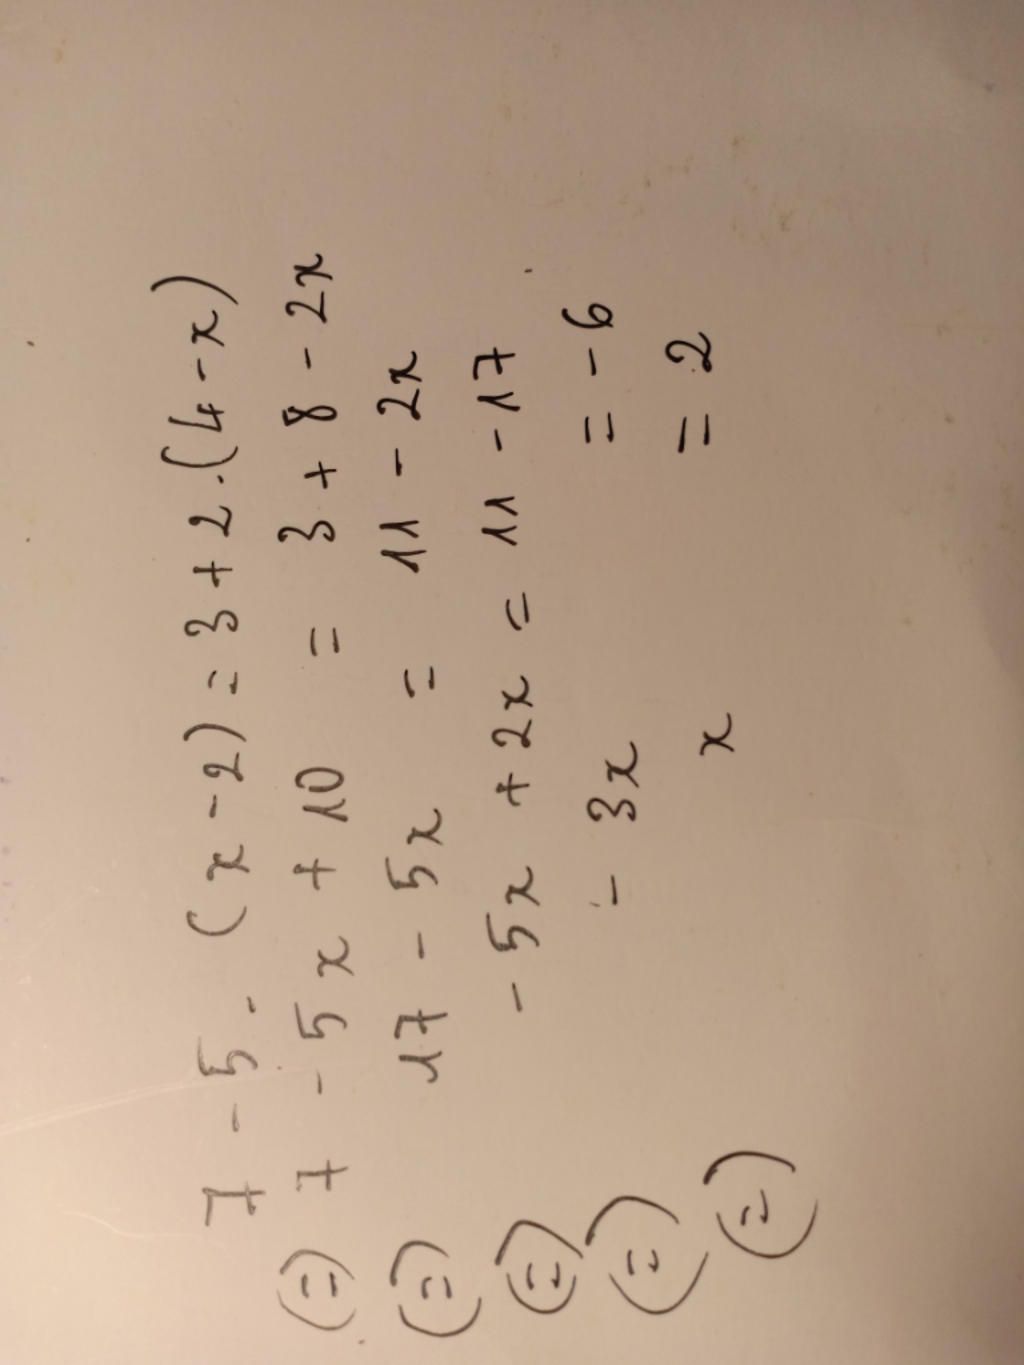 7 - 5 · (x - 2) = 3 + 2 · (4 - x)
(=) 7 - 5x + 10 = 3 + 8 - 2x
(=) 17 - 5x = 11 - 2x
(=) - 5x + 2x = 11 - 17
(=) - 3x = - 6
(=) x = 2